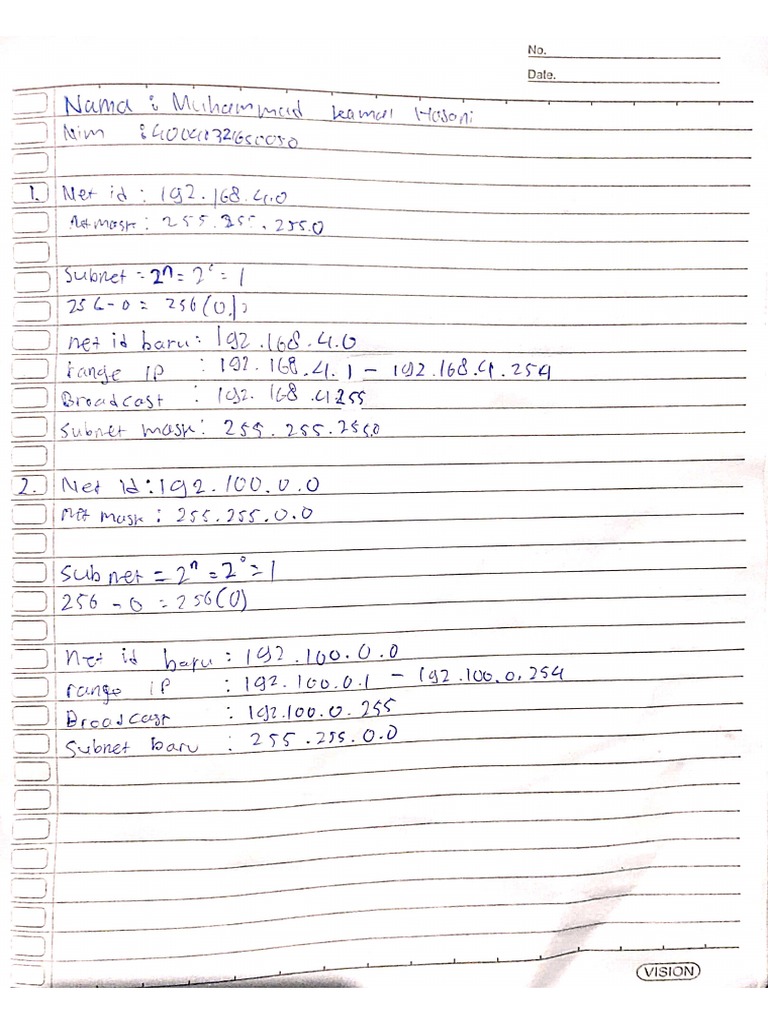 No.
Date.
Nama : Muhammad Kamal Hasani
Nim :
1. Net id : 192.168.4.0
Net mask : 255.255.255.0
Subnet = 2ⁿ = 2⁰ = 1
256 - 0 = 256 (0)
net id baru : 192.168.4.0
range IP : 192.168.4.1 - 192.168.4.254
Broadcast : 192.168.4255
Subnet mask : 255.255.255.0
2. Net id : 192.100.0.0
Net mask : 255.255.0.0
Subnet = 2ⁿ = 2⁰ = 1
256 - 0 = 256 (0)
Net id baru : 192.100.0.0
range IP : 192.100.0.1 - 192.100.0.254
Broadcast : 192.100.0.255
Subnet baru : 255.255.0.0
VISION